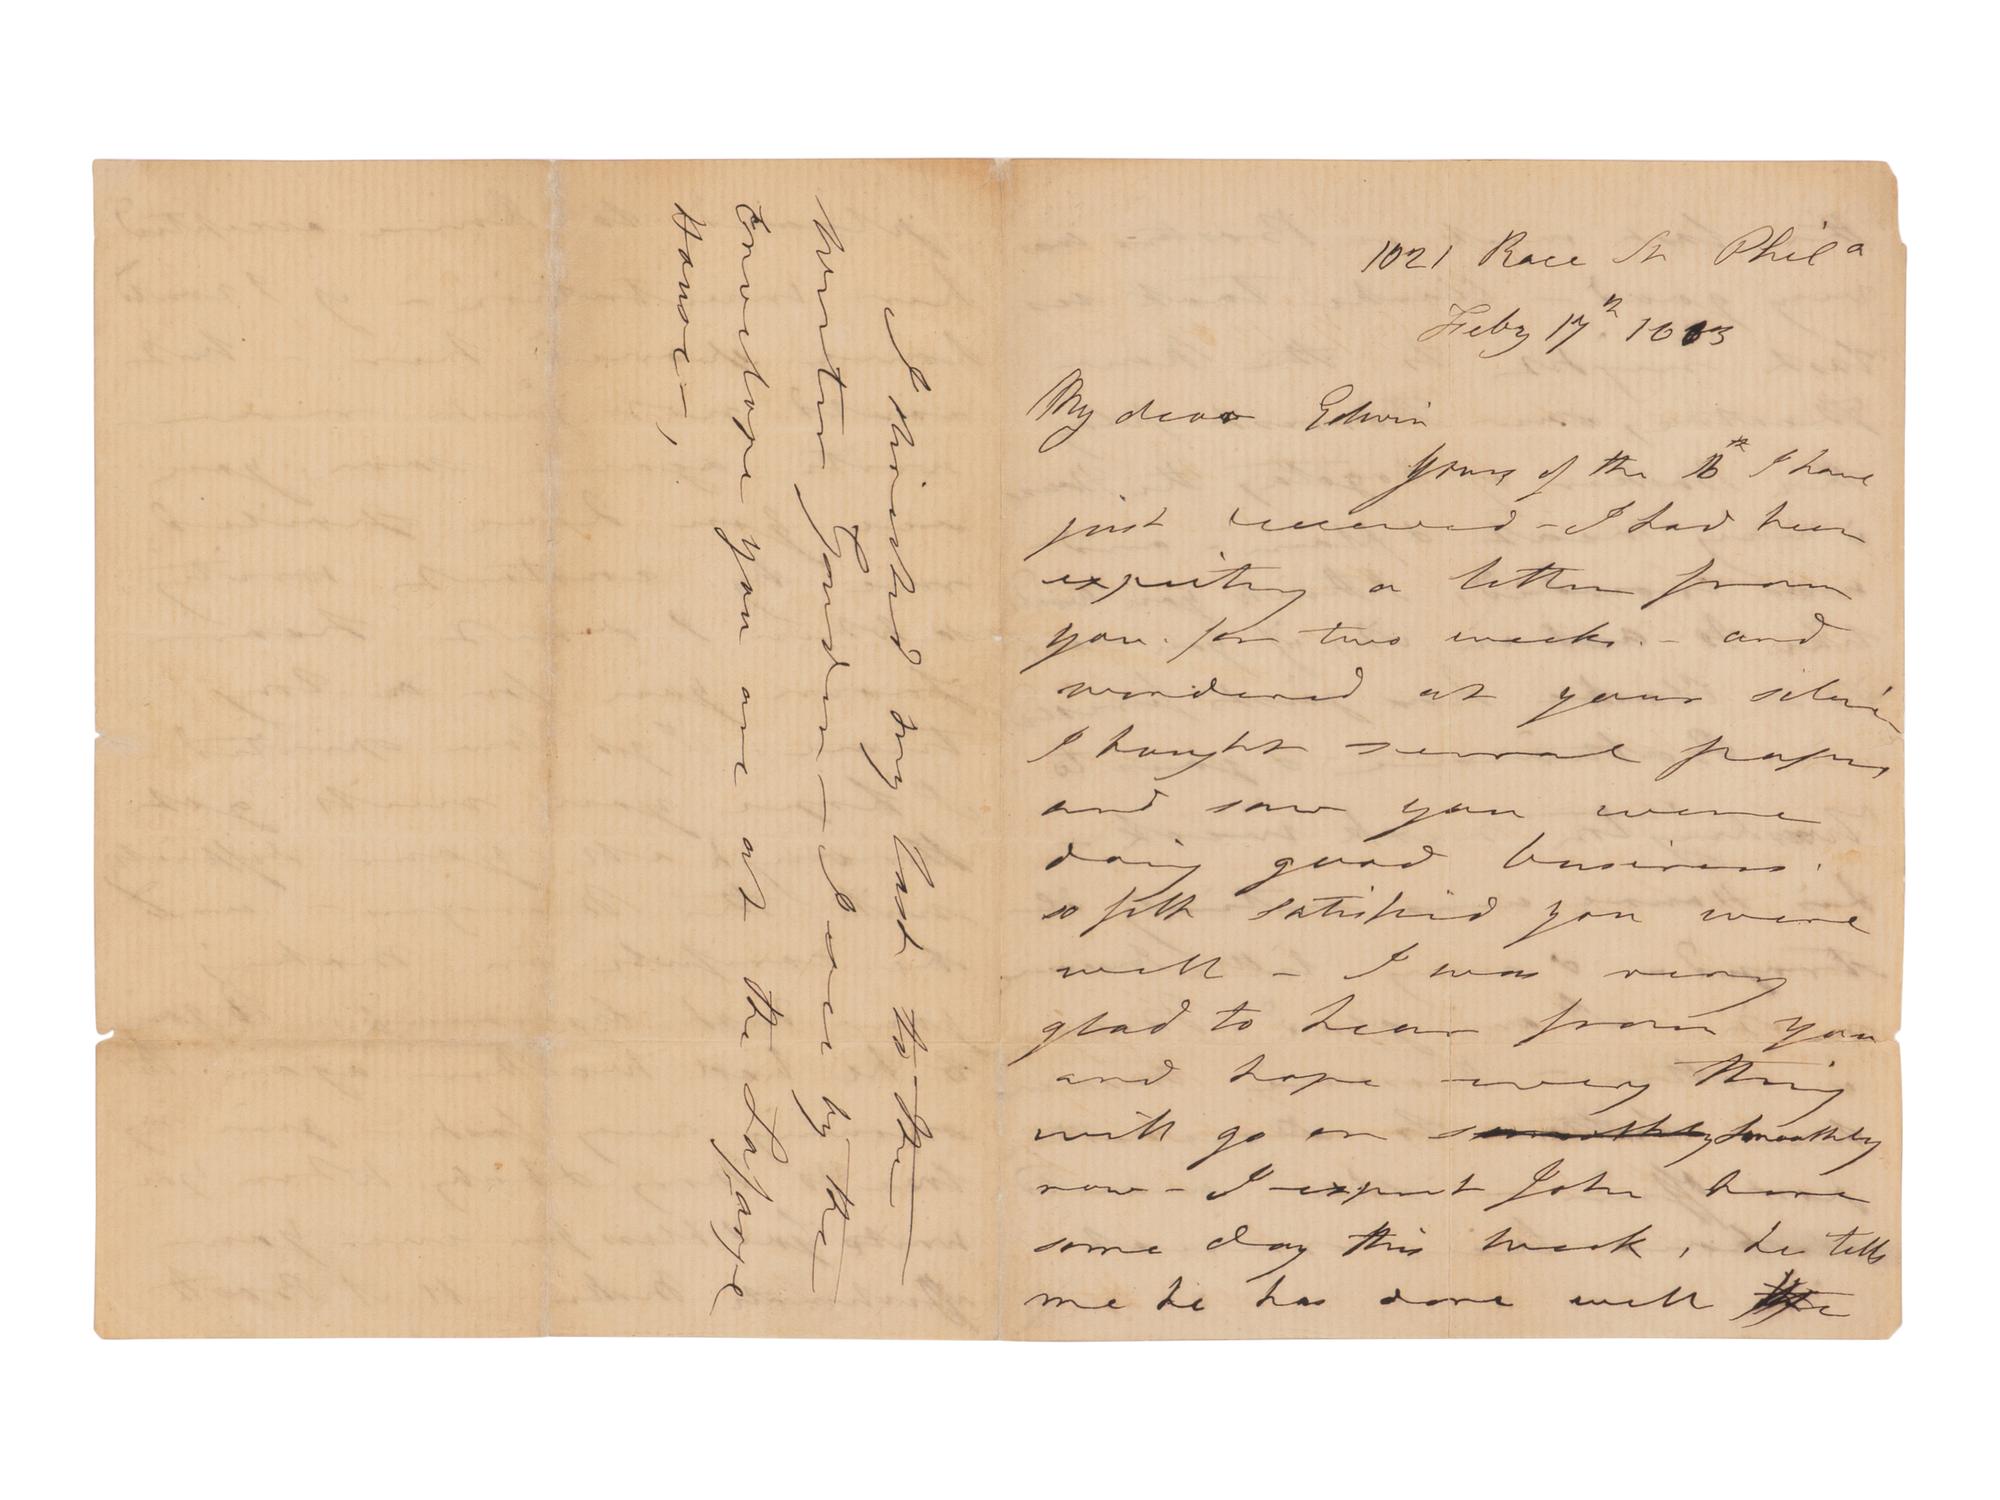 1021 Race St Phila
Feby 17th 1863
My dear Edwin
Yours of the 16th I have
just received - I had been
expecting a letter from
you for two weeks - and
wondered at your silence
I bought several papers
and saw you were
doing good business.
so felt satisfied you were
well - I was very
glad to hear from you
and hope every thing
will go on smoothly smoothly
now - I expect John here
some day this week, he tells
me he has done well the
I directed my last to the
Winter Garden - I see by the
Envelope you are at the Lafarge
House,